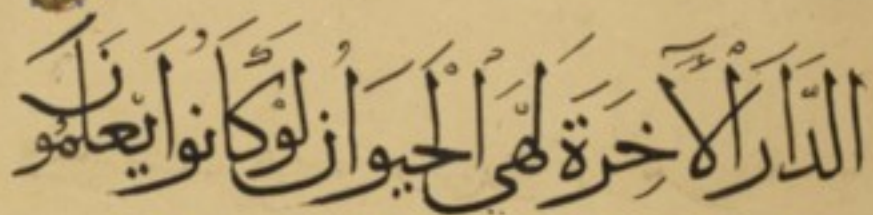 الدَّارَ الْآَخِرَةَ لَهِيَ الْحَيَوَانُ لَوْ كَانُوا يَعْلَمُونَ